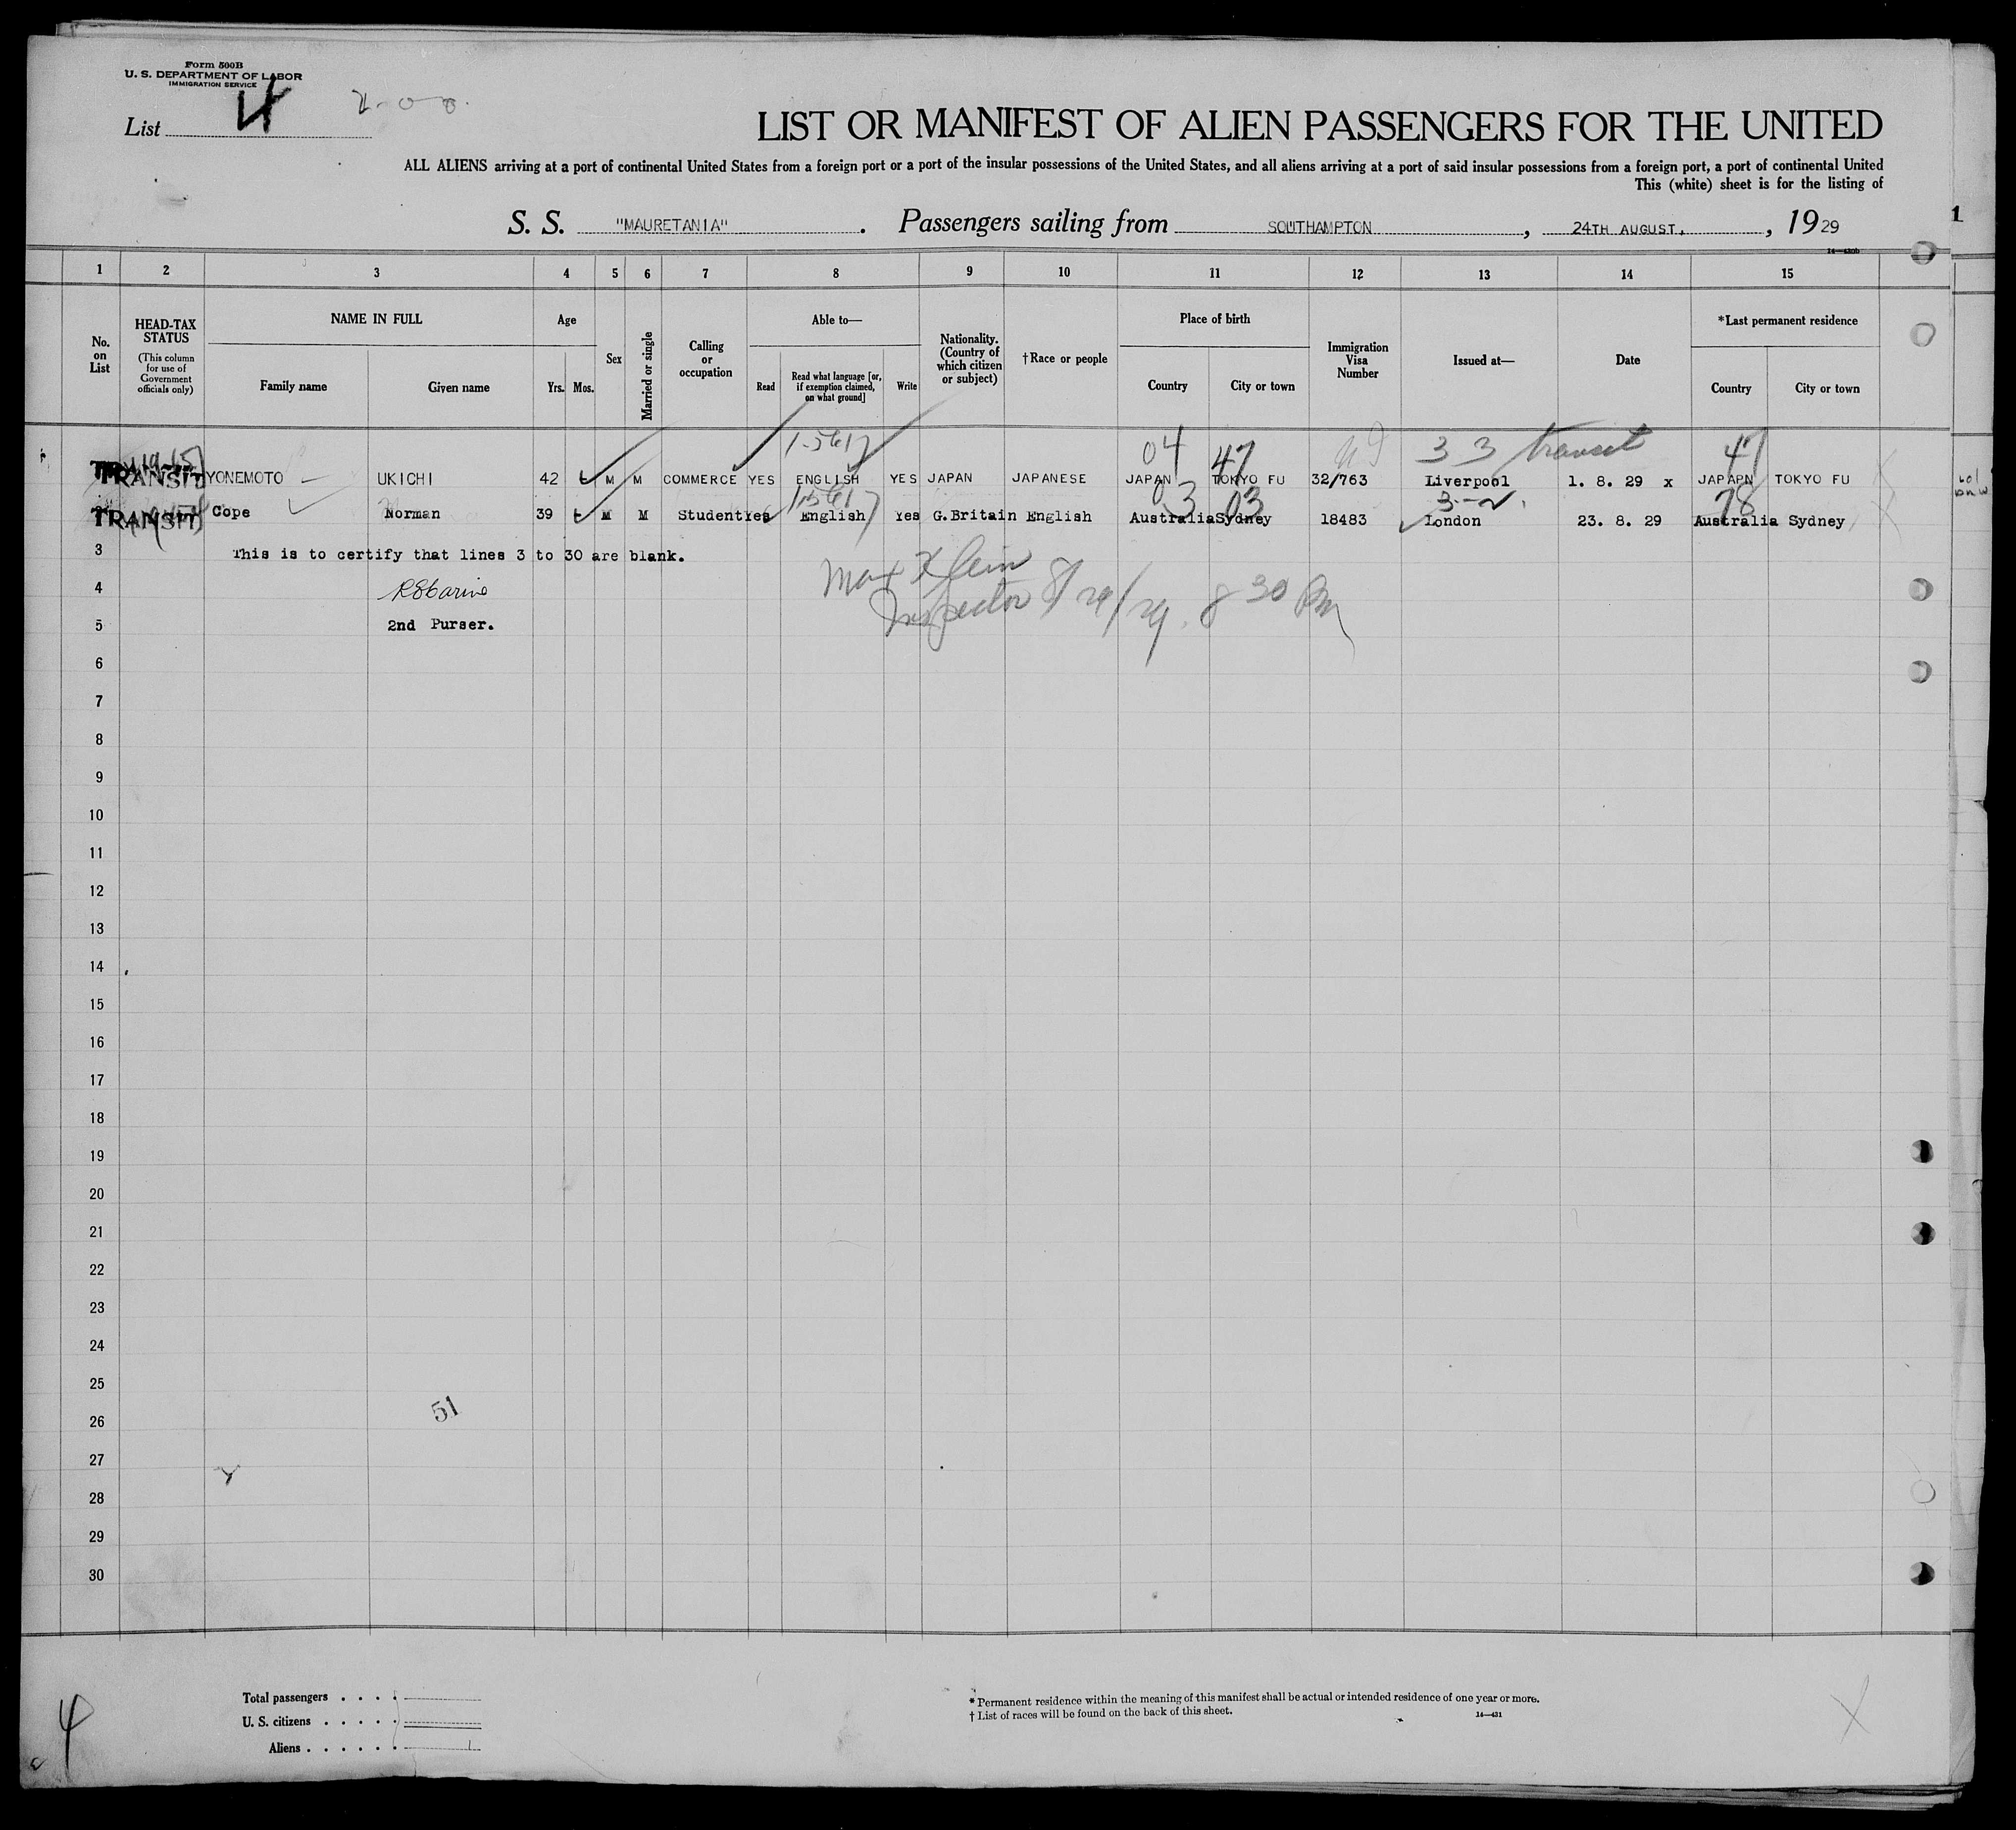 Form 500B
U. S. DEPARTMENT OF LABOR
IMMIGRATION SERVICE
List 4
LIST OR MANIFEST OF ALIEN PASSENGERS FOR THE UNITED
ALL ALIENS arriving at a port of continental United States from a foreign port or a port of the insular possessions of the United States, and all aliens arriving at a port of said insular possessions from a foreign port, a port of continental United
This (white) sheet is for the listing of
S. S. "MAURETANIA". Passengers sailing from SOUTHAMPTON, 24TH AUGUST, , 1929
1 2 3 4 5 6 7 8 9 10 11 12 13 14 15
No. on List
HEAD-TAX STATUS
(This column for use of Government officials only)
NAME IN FULL
Family name Given name
Age
Yrs. Mos.
Sex
Married or single
Calling or occupation
Able to—
Read
Read what language [or, if exemption claimed, on what ground]
Write
Nationality. (Country of which citizen or subject)
†Race or people
Place of birth
Country City or town
Immigration Visa Number
Issued at—
Date
*Last permanent residence
Country City or town
04 47 33 transit 47
TRANSIT YONEMOTO UKICHI 42 M M COMMERCE YES ENGLISH YES JAPAN JAPANESE JAPAN TOKYO FU 32/763 Liverpool 1. 8. 29 x JAPAPN TOKYO FU
03 03 78
TRANSIT Cope Norman 39 M M Student Yes English Yes G.Britain English Australia Sydney 18483 London 23. 8. 29 Australia Sydney
3 This is to certify that lines 3 to 30 are blank.
Max Klein
4
Inspector 8/29/29. 8 30 PM
5 2nd Purser.
6
7
8
9
10
11
12
13
14
15
16
17
18
19
20
21
22
23
24
25
51
26
27
28
29
30
Total passengers . . . .
U. S. citizens . . . . .
Aliens . . . . . .
* Permanent residence within the meaning of this manifest shall be actual or intended residence of one year or more.
† List of races will be found on the back of this sheet.
14—431
4